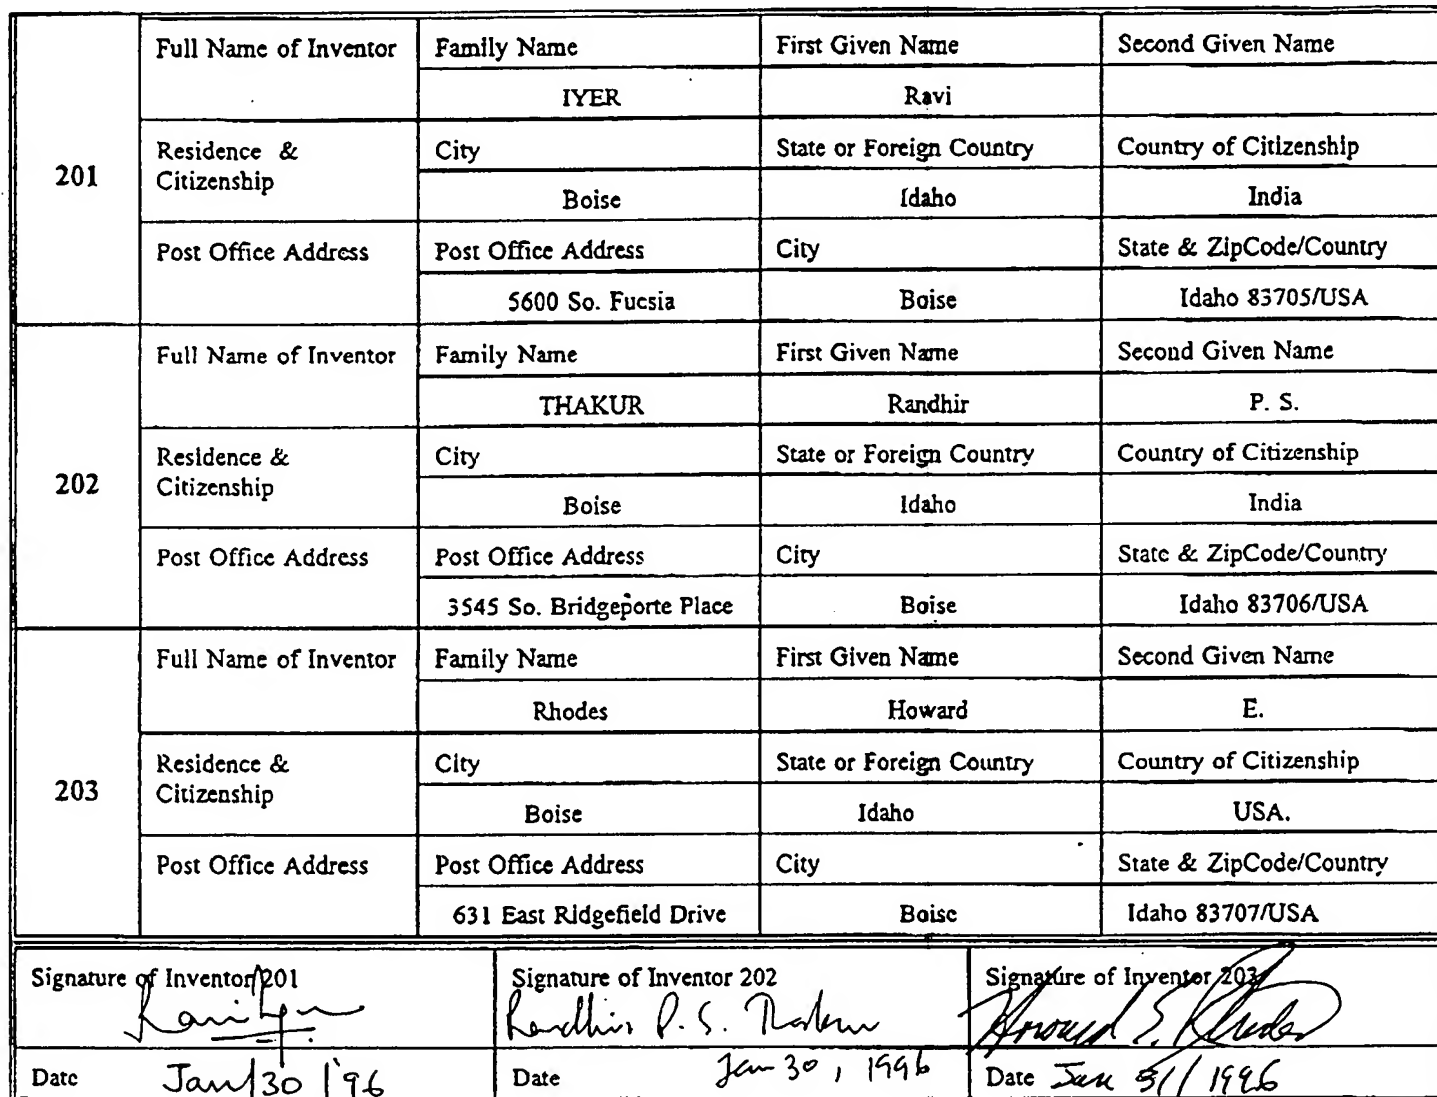 Full Name of Inventor Family Name First Given Name Second Given Name
IYER Ravi
201 Residence & Citizenship City State or Foreign Country Country of Citizenship
Boise Idaho India
Post Office Address Post Office Address City State & ZipCode/Country
5600 So. Fucsia Boise Idaho 83705/USA
Full Name of Inventor Family Name First Given Name Second Given Name
THAKUR Randhir P. S.
202 Residence & Citizenship City State or Foreign Country Country of Citizenship
Boise Idaho India
Post Office Address Post Office Address City State & ZipCode/Country
3545 So. Bridgeporte Place Boise Idaho 83706/USA
Full Name of Inventor Family Name First Given Name Second Given Name
Rhodes Howard E.
203 Residence & Citizenship City State or Foreign Country Country of Citizenship
Boise Idaho USA.
Post Office Address Post Office Address City State & ZipCode/Country
631 East Ridgefield Drive Boise Idaho 83707/USA
Signature of Inventor 201 Signature of Inventor 202 Signature of Inventor 203
Ravi Iyer Randhir P. S. Thakur Howard E. Rhodes
Date Jan/30/'96 Date Jan 30, 1996 Date Jan 31/1996